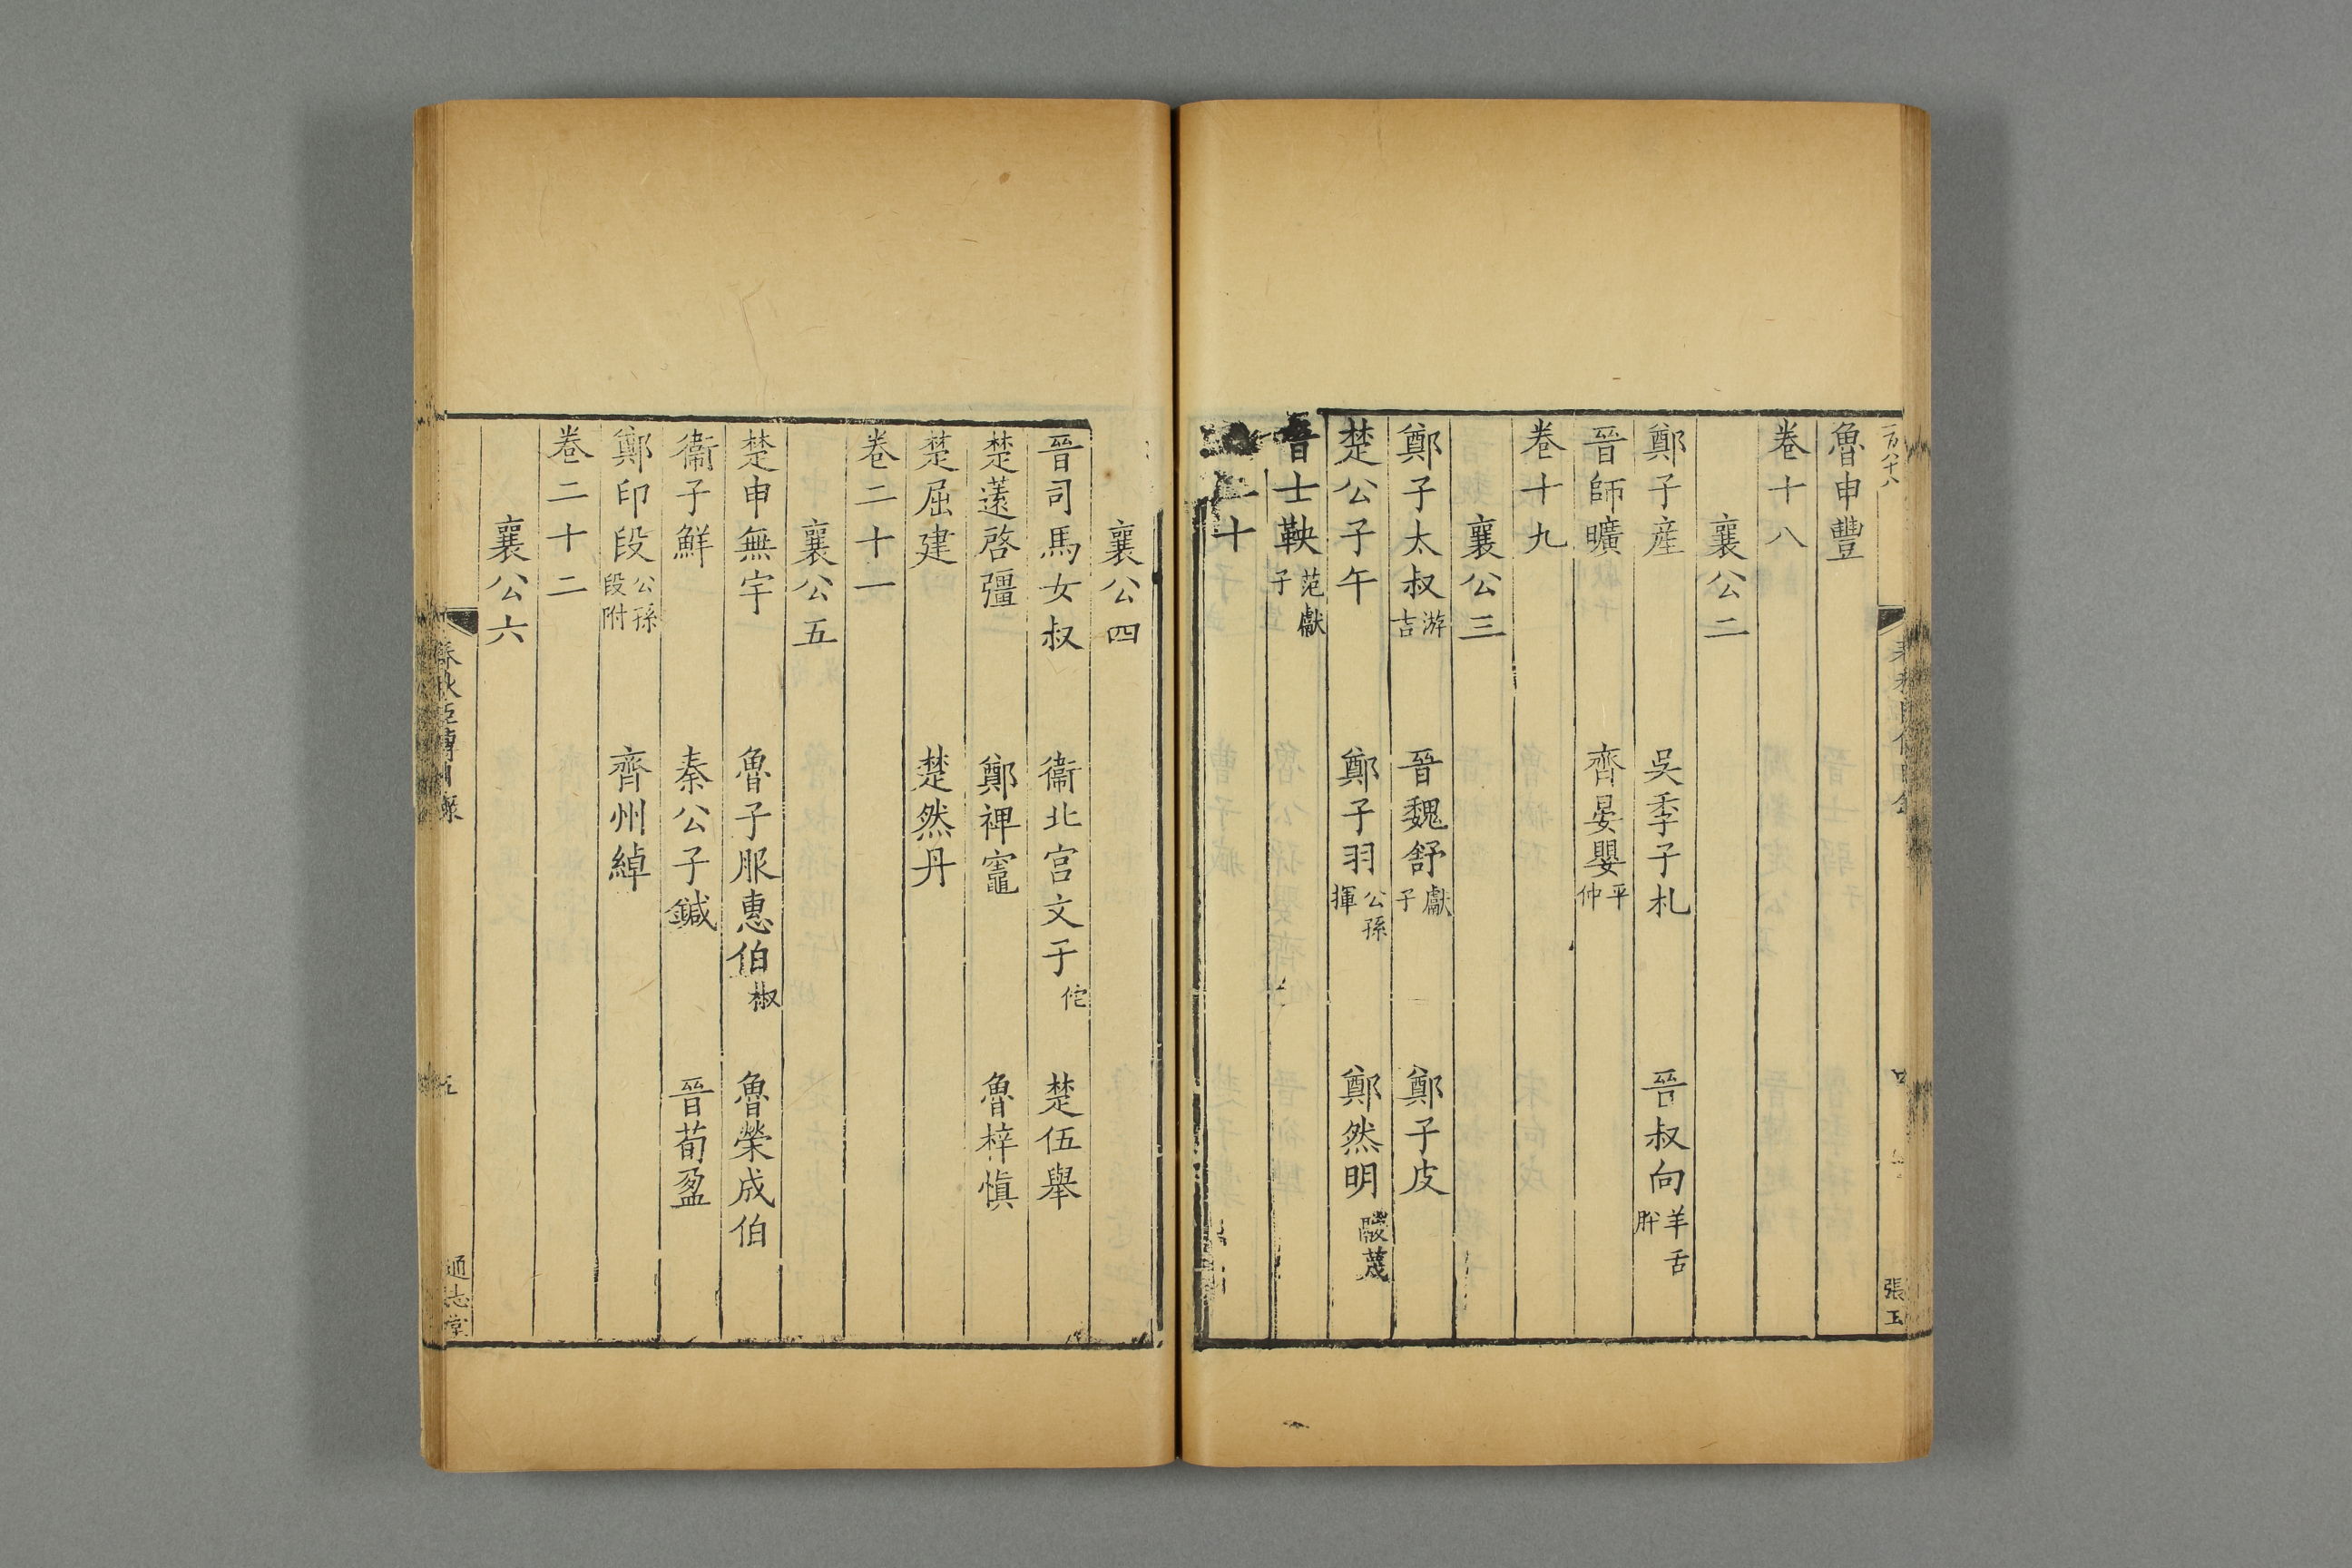 魯申豐
卷十八
襄公二
鄭子產 吳季子札 晉叔向 羊舌肸
晉師曠 齊晏嬰 平仲
卷十九
襄公三
鄭子太叔 游吉 晉魏舒 獻子 鄭子皮
楚公子午 鄭子羽 公孫揮 鄭然明 鬷蔑
晉士鞅 范獻子
二十
襄公四
晉司馬女叔 衞北宫文子 佗 楚伍舉
楚薳啓彊 鄭裨竈 魯梓慎
楚屈建 楚然丹
卷二十一
襄公五
楚申無宇 魯子服惠伯 椒 魯榮成伯
衞子鮮 秦公子鍼 晉荀盈
鄭印段 公孫段附 齊州綽
卷二十二
襄公六
春秋臣傳目錄 五 通志堂
張玉